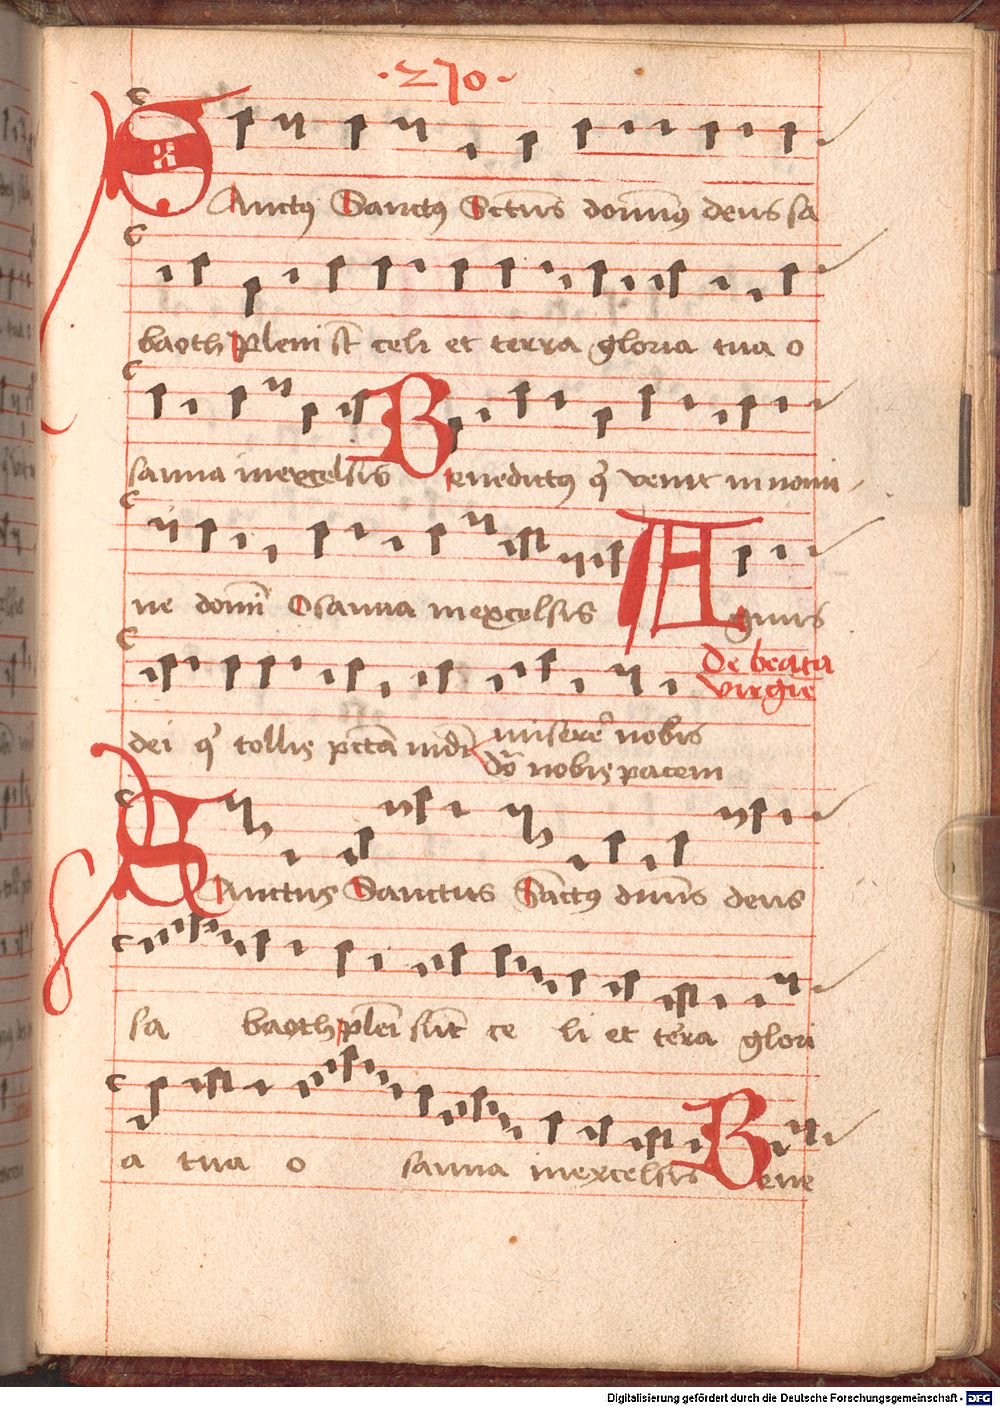 ·270·
Sanctꝯ Sanctꝯ Sctus dominꝯ deus sa
baoth pleni st celi et terra gloria tua o
sanna inexcelsis Benedictꝯ q venit in nomi
ne domi Osanna inexcelsis Agnus
De beata
virgīe
dei q tollis pcta mdi miserē nobis
do nobis pacem
Sanctus Sanctus Sāctꝯ dnus deus
sa baoth plēi sūt ce li et terra glori
a tua o sanna inexcelsis Bene
Digitalisierung gefördert durch die Deutsche Forschungsgemeinschaft - DFG